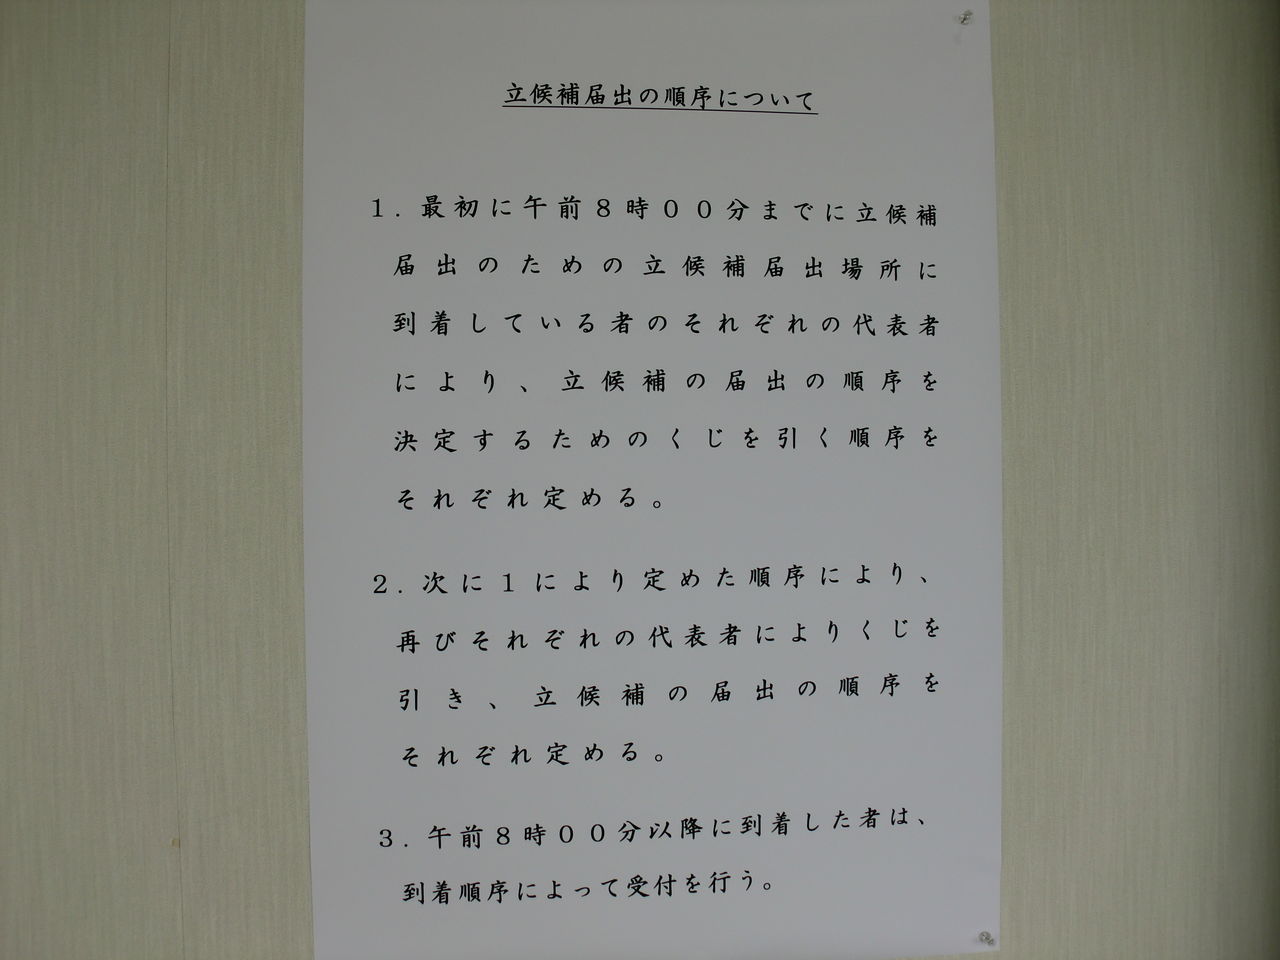 立候補届出の順序について
１．最初に午前８時００分までに立候補
届出のための立候補届出場所に
到着している者のそれぞれの代表者
により、立候補の届出の順序を
決定するためのくじを引く順序を
それぞれ定める。
２．次に１により定めた順序により、
再びそれぞれの代表者によりくじを
引き、立候補の届出の順序を
それぞれ定める。
３．午前８時００分以降に到着した者は、
到着順序によって受付を行う。